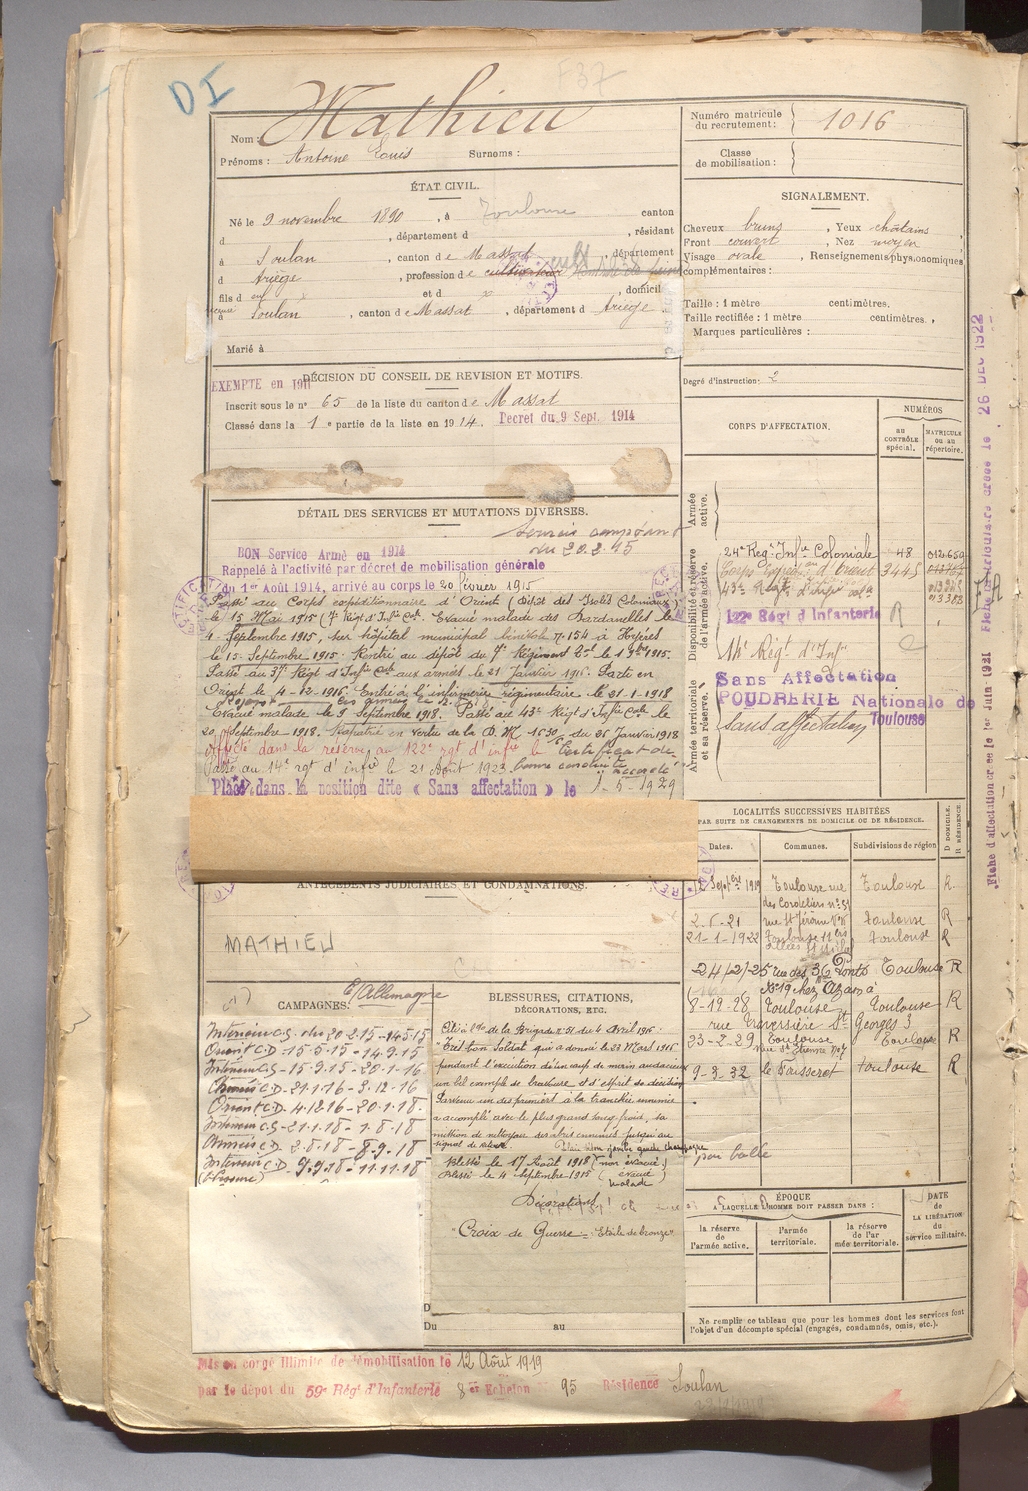 DI
F37
Nom : Mathieu
Prénoms : Antoine Louis Surnoms :
Numéro matricule du recrutement : 1016
Classe de mobilisation :
ÉTAT CIVIL.
Né le 9 novembre 1890, à Toulouse canton
d , département d , résidant
à Soulan , canton de Massat , département
d Ariège , profession de cultivateur
fils d et d x , domicilié
à Soulan , canton de Massat , département d Ariège
Marié à
SIGNALEMENT.
Cheveux bruns , Yeux châtains
Front couvert , Nez moyen
Visage ovale , Renseignements physionomiques
complémentaires :
Taille : 1 mètre centimètres.
Taille rectifiée : 1 mètre centimètres.
Marques particulières :
Degré d'instruction : 2
DÉCISION DU CONSEIL DE REVISION ET MOTIFS.
EXEMPTE en 191
Inscrit sous le n° 65 de la liste du canton de Massat
Classé dans la 1e partie de la liste en 1914. Décret du 9 Sept. 1914
CORPS D'AFFECTATION.
NUMÉROS
au CONTRÔLE spécial.
MATRICULE ou au répertoire.
Armée active.
Disponibilité et réserve de l'armée active.
24e Régt Infie Coloniale 48 012.650
Corps Expédre d'Orient 3445
43e Régt d'Infie Cole
122e Régt d'Infanterie R
14e Régt d'Infie
Armée territoriale et sa réserve.
Sans Affectation
POUDRERIE Nationale de Toulouse
Sans affectation
DÉTAIL DES SERVICES ET MUTATIONS DIVERSES.
du 20.2.15
BON Service Armé en 1914
Rappelé à l'activité par décret de mobilisation générale
du 1er Août 1914, arrivé au corps le 20 février 1915
Passé au Corps expéditionnaire d'Orient (Dépôt des Isolés Coloniaux)
le 15 Mai 1915 (7e Régt d'Infie Cole Evacué malade des Dardanelles le
4 Septembre 1915, sur hôpital municipal bénévole n° 154 à Hyères
le 15 Septembre 1915. Rentré au dépôt du 7e Régiment Col le 1 9bre 1915.
Passé au 37e Régt d'Infie Cole aux armées le 21 Janvier 1916. Parti en
Orient le 4-12-1916. Entré à l'infirmerie régimentaire le 21-1-1918
Evacué malade le 9 Septembre 1918. Passé au 43e Régt d'Infie Cole le
20 Septembre 1918. Rapatrié en vertu de la D.M. 1630 du 26 Janvier 1918
Affecté dans la réserve au 122e rgt d'infie le Certificat de
Passé au 14e rgt d'infie le 21 Août 1923. bonne conduite
"accordé"
Placé dans la position dite « Sans affectation » le 1-5-1929
ANTÉCÉDENTS JUDICIAIRES ET CONDAMNATIONS.
MATHIEU
LOCALITÉS SUCCESSIVES HABITÉES
PAR SUITE DE CHANGEMENTS DE DOMICILE OU DE RÉSIDENCE.
Dates. Communes. Subdivisions de région D DOMICILE. R RÉSIDENCE.
Septbre 1919 Toulouse rue des Cordeliers n° 31 Toulouse R.
2-5-21 rue St Jérôme Toulouse R
21-1-1922 Toulouse 11 bis allées St Michel Toulouse R
24/2/25 rue des 36 Ponts Toulouse R
N° 19 chez Azam à
8-12-28 Toulouse Toulouse R
rue Traversière St Georges 3
23-2-29 Toulouse Toulouse R
rue St Etienne n° 7
9-3-32 le Fousseret Toulouse R
CAMPAGNES.
C/Allemagne
Intérieur C.S. du 20.2.15-14-5-15
Orient C.D-15-5-15-14-9-15
Intérieur C.S-15-9-15-20-1-16
Armées C.D-21-1-16-3-12-16
Orient C.D-4-12-16-20-1-18.
Intérieur C.S-21-1-18-1-8-18
Armées C.D-2-8-18-8-9-18
Intérieur C.D-9-9-18-11-11-18
(blessure)
BLESSURES, CITATIONS, DÉCORATIONS, ETC.
Cité à l'O. de la Brigade n° 51 du 4 Avril 1916.
"Très bon Soldat qui a donné le 23 Mars 1916
pendant l'exécution d'un coup de main audacieux
un bel exemple de bravoure et d'esprit de décision
Parvenu un des premiers à la tranchée ennemie
a accompli avec le plus grand sang-froid, sa
mission de nettoyeur des abris ennemis jusqu'au
signal de retour.
Blessé le 17 Août 1918 (non évacué) par balle
Blessé le 4 Septembre 1915 (évacué malade)
Décorations
"Croix de Guerre - Etoile de bronze"
Du au
ÉPOQUE
A LAQUELLE L'HOMME DOIT PASSER DANS :
la réserve de l'armée active.
l'armée territoriale.
la réserve de l'armée territoriale.
DATE de LA LIBÉRATION du service militaire.
Ne remplir ce tableau que pour les hommes dont les services font
l'objet d'un décompte spécial (engagés, condamnés, omis, etc.).
Mis en congé illimité de démobilisation le 12 Août 1919
par le dépôt du 59e Régt d'Infanterie 8e Echelon N° 95 Résidence Soulan
Fiche d'affectation créée le 1er Juin 1921 Fiche matriculaire créée le 26 DEC 1922